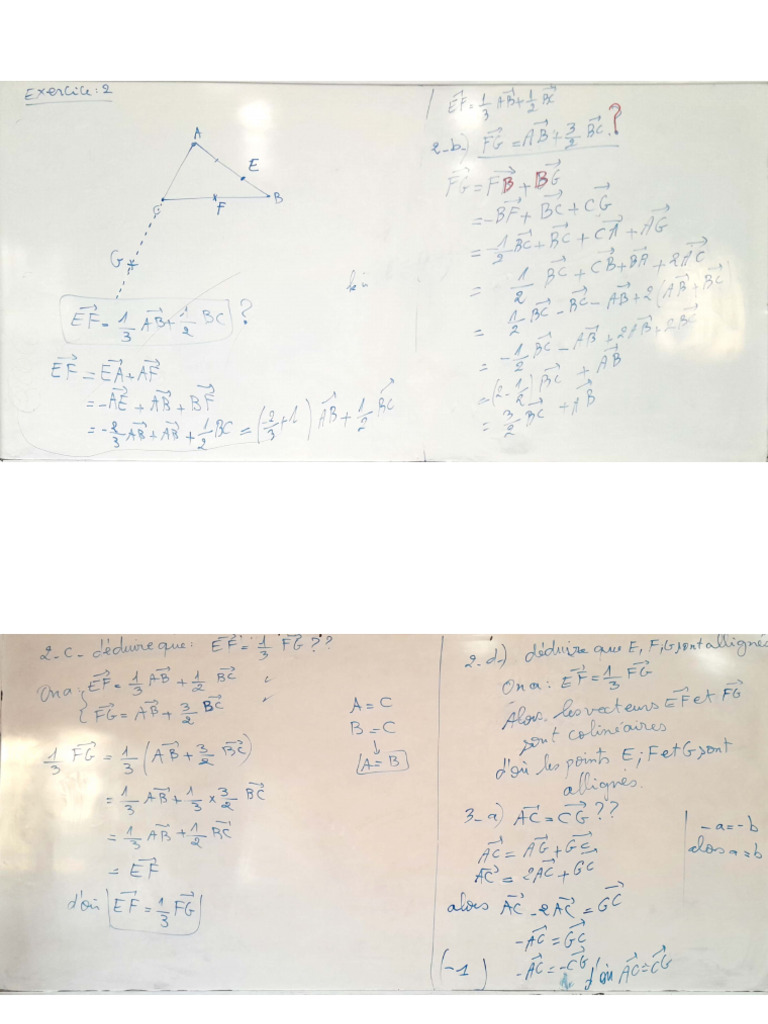 Exercice: 2
A
E
B
F
C
G
$\overrightarrow{EF} = \frac{1}{3} \overrightarrow{AB} + \frac{1}{2} \overrightarrow{BC}$ ?
$\overrightarrow{EF} = \overrightarrow{EA} + \overrightarrow{AF}$
$= -\overrightarrow{AE} + \overrightarrow{AB} + \overrightarrow{BF}$
$= -\frac{2}{3} \overrightarrow{AB} + \overrightarrow{AB} + \frac{1}{2} \overrightarrow{BC} = \left(-\frac{2}{3} + 1\right) \overrightarrow{AB} + \frac{1}{2} \overrightarrow{BC}$
$\overrightarrow{EF} = \frac{1}{3} \overrightarrow{AB} + \frac{1}{2} \overrightarrow{BC}$
2-b-) $\overrightarrow{FG} = \overrightarrow{AB} + \frac{3}{2} \overrightarrow{BC}$. ?
$\overrightarrow{FG} = \overrightarrow{FB} + \overrightarrow{BG}$
$= -\overrightarrow{BF} + \overrightarrow{BC} + \overrightarrow{CG}$
$= -\frac{1}{2} \overrightarrow{BC} + \overrightarrow{BC} + \overrightarrow{CA} + \overrightarrow{AG}$
$= \frac{1}{2} \overrightarrow{BC} + \overrightarrow{CB} + \overrightarrow{BA} + 2\overrightarrow{AC}$
$= \frac{1}{2} \overrightarrow{BC} - \overrightarrow{BC} - \overrightarrow{AB} + 2\left(\overrightarrow{AB} + \overrightarrow{BC}\right)$
$= -\frac{1}{2} \overrightarrow{BC} - \overrightarrow{AB} + 2\overrightarrow{AB} + 2\overrightarrow{BC}$
$= \left(2 - \frac{1}{2}\right) \overrightarrow{BC} + \overrightarrow{AB}$
$= \frac{3}{2} \overrightarrow{BC} + \overrightarrow{AB}$
2-c- déduire que: $\overrightarrow{EF} = \frac{1}{3} \overrightarrow{FG}$ ??
On a: $\overrightarrow{EF} = \frac{1}{3} \overrightarrow{AB} + \frac{1}{2} \overrightarrow{BC}$
$\overrightarrow{FG} = \overrightarrow{AB} + \frac{3}{2} \overrightarrow{BC}$
$\frac{1}{3} \overrightarrow{FG} = \frac{1}{3} \left(\overrightarrow{AB} + \frac{3}{2} \overrightarrow{BC}\right)$
$= \frac{1}{3} \overrightarrow{AB} + \frac{1}{3} \times \frac{3}{2} \overrightarrow{BC}$
$= \frac{1}{3} \overrightarrow{AB} + \frac{1}{2} \overrightarrow{BC}$
$= \overrightarrow{EF}$
d'où $\overrightarrow{EF} = \frac{1}{3} \overrightarrow{FG}$
A = C
B = C
↓
A = B
2-d-) déduire que E, F, G sont allignés
On a: $\overrightarrow{EF} = \frac{1}{3} \overrightarrow{FG}$
Alors les vecteurs $\overrightarrow{EF}$ et $\overrightarrow{FG}$
sont colinéaires
d'où les points E; F et G sont
allignés.
3-a) $\overrightarrow{AC} = \overrightarrow{CG}$ ??
$\overrightarrow{AC} = \overrightarrow{AG} + \overrightarrow{GC}$
$\overrightarrow{AC} = 2\overrightarrow{AC} + \overrightarrow{GC}$
alors $\overrightarrow{AC} - 2\overrightarrow{AC} = \overrightarrow{GC}$
$-\overrightarrow{AC} = \overrightarrow{GC}$
(-1) $-\overrightarrow{AC} = -\overrightarrow{CG}$ d'où $\overrightarrow{AC} = \overrightarrow{CG}$
-a = -b
alors a = b